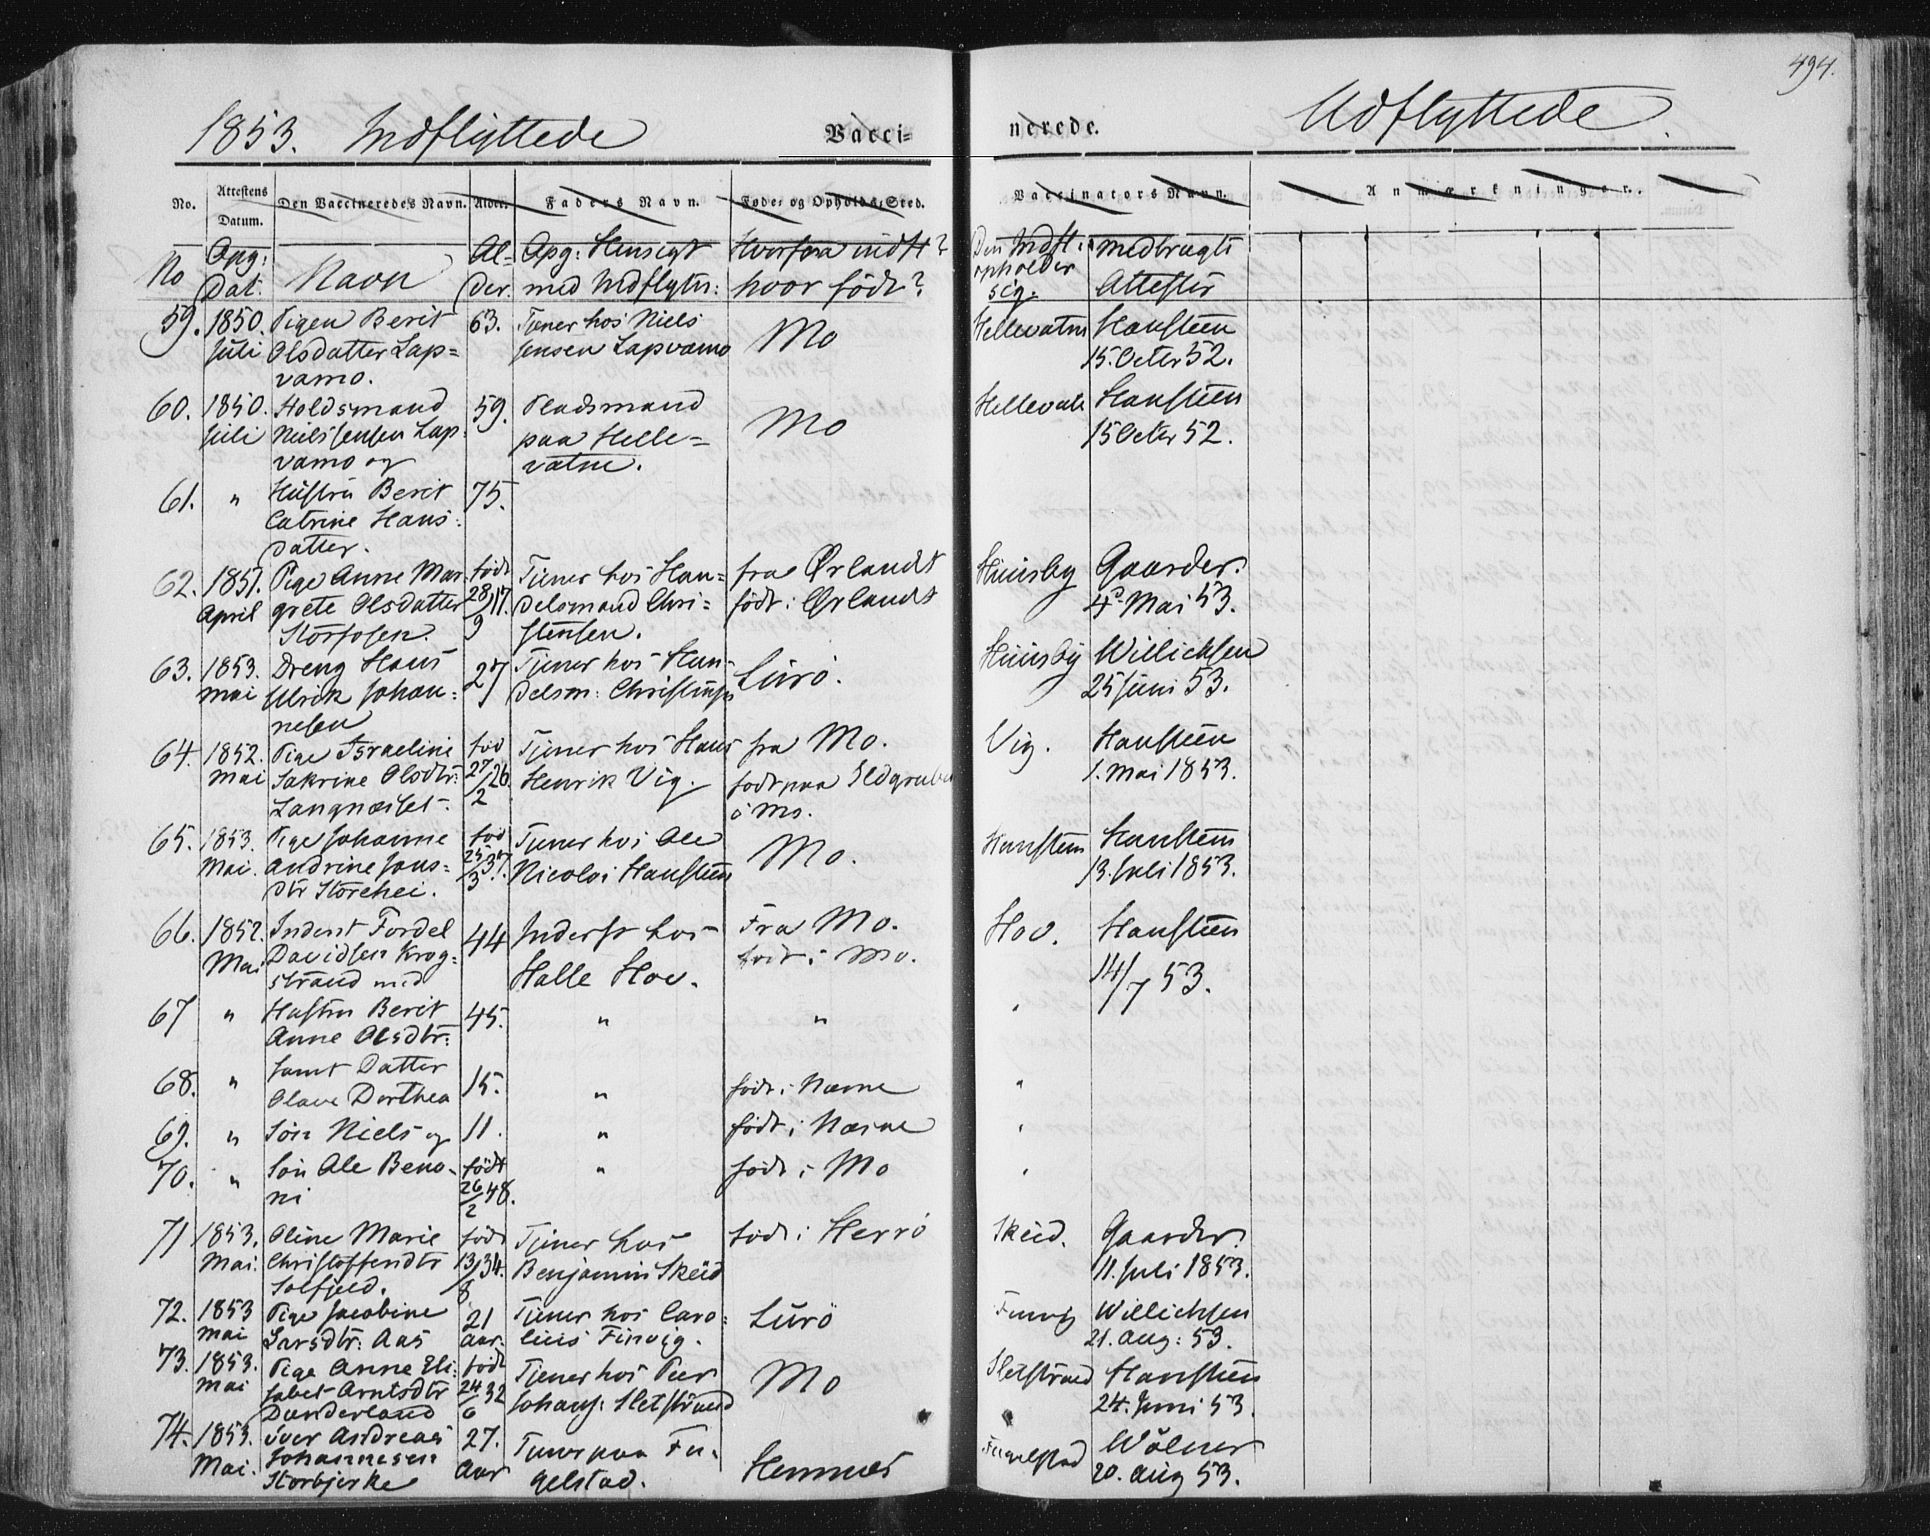 494.
1853. Indflyttede
Vacci-
nerede.
Udflyttede.
No.
Attestens Datum.
Den Vaccineredes Navn.
Alder.
Faders Navn.
Føde- og Opholds-Sted.
Vaccinators Navn.
Anmærkninger.
No
Opg: Dat.
Navn
Al-
der.
Opg: Hensigt
med Indflytn:
Hvorfra indfl?
hvor født?
Den Indfl:
opholder
sig.
medbragt
Attester
59. 1850. Pigen Berit 63. Tjener hos Niels Mo Hellevatne Hansteen
Juli Olsdatter Lap= Jensen Lapvamo 15. Octer 52.
vamo.
60. 1850. Holdsmand 59. Pladsmand Mo Hellevatn Hansteen
Juli Niels Jensen Lap- paa Helle= 15 Octer 52.
vamo og vatne.
61. " Hustru Berit 75.
Catrine Hans-
datter.
62. 1851. Pige Anne Mar- født Tjener hos Han= fra Ørlandt Huusby Gaarder.
April grete Olsdatter 28/9 17. delsmand Chri= født i Ørlandt 4de Mai 53.
Storfosen. stensen.
63. 1853. Dreng Hans 27 Tjener hos Han- Lurö. Huusby Willichsen
Mai Ulrik Johan- delsm: Christens 25 Juni 53.
nesen
64. 1852. Pige Israeline fød Tjener hos Hans fra Mo. Vig. Hansteen
Mai Sakrine Olsdtr: 27/2 26. Henrik Vig. født paa Ildgruben 1. Mai 1853.
Langnæset. i Mo.
65. 1853. Pige Johanne fød Tjener hos Ole Mo. Hansteen Hansteen
Mai. Andrine Jons- 25/3 37. Nicolai Hansteen 13. Juli 1853.
dtr Storehei.
66. 1852. Inderst Fordel 44 Inderst hos Fra Mo. Hov. Hansteen
Mai Davidsen Krog- Halle Hov. født i Mo. 14/7 53.
strand med
67 " Hustru Berit 45. " "
Anne Olsdtr:
68. " samt Datter 15. " født i Næsne "
Olave Dorthea
69. " Søn Niels og 11. " født i Næsne
70. " Søn Ole Beno- født " født i Mo
ni 26/2 48.
71 1853. Oline Marie født Tjener hos født i Herrö Skeid. Gaarder.
Mai. Christoffersdtr 13/8 34. Benjamin Skeid 11. Juli 1853.
Solfjeld.
72. 1853 Pige Jacobine 21 Tjener hos Caro- Lurö Finvig Willichsen
Mai Larsdtr: Aas Aar. lius Finvig. 21. Aug: 53.
73. 1853. Pige Anne Eli- født Tjener hos Peer Mo Sletstrand Hansteen
Mai sabet Arntsdtr 24/6 32 Johans: Sletstrand 24. Juni 53.
Dunderland
74. 1853. Iver Andreas 27. Tjener paa Fu- Hemnæs Fugelstad Wölner
Mai. Johannesen Aar gelstad. 20. Aug 53.
Storbjerke